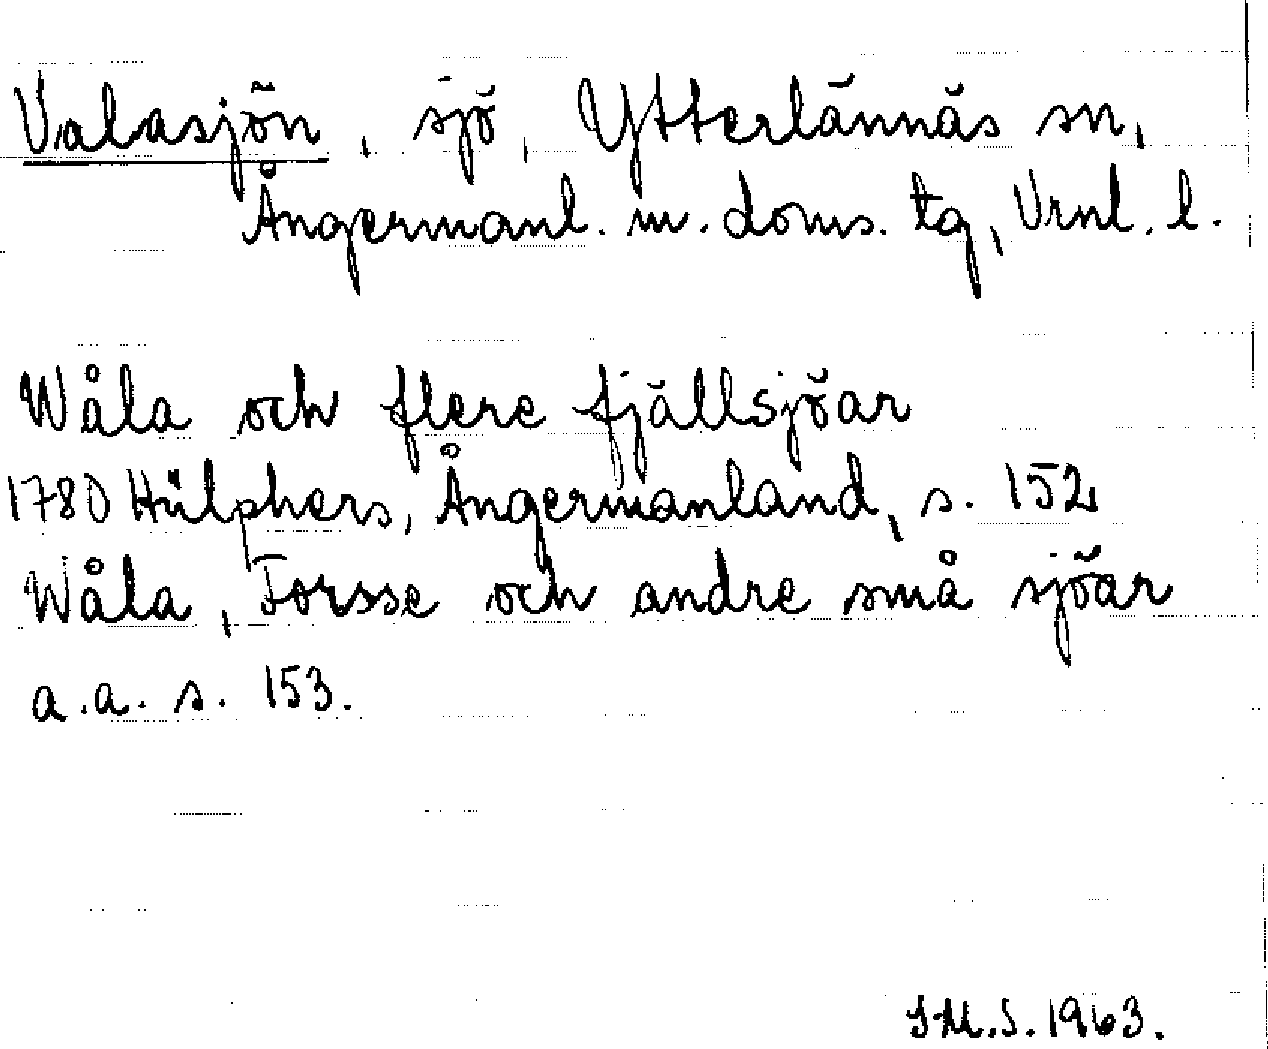 Valasjön, sjö, Ytterlännäs sn,
Ångermanl. m. doms. tg, Vrnl. l.
Wåla och flere fjällsjöar
1780 Hülphers, Ångermanland, s. 152
Wåla, Forsse och andre små sjöar
a.a. s. 153.
S.M.S. 1963.